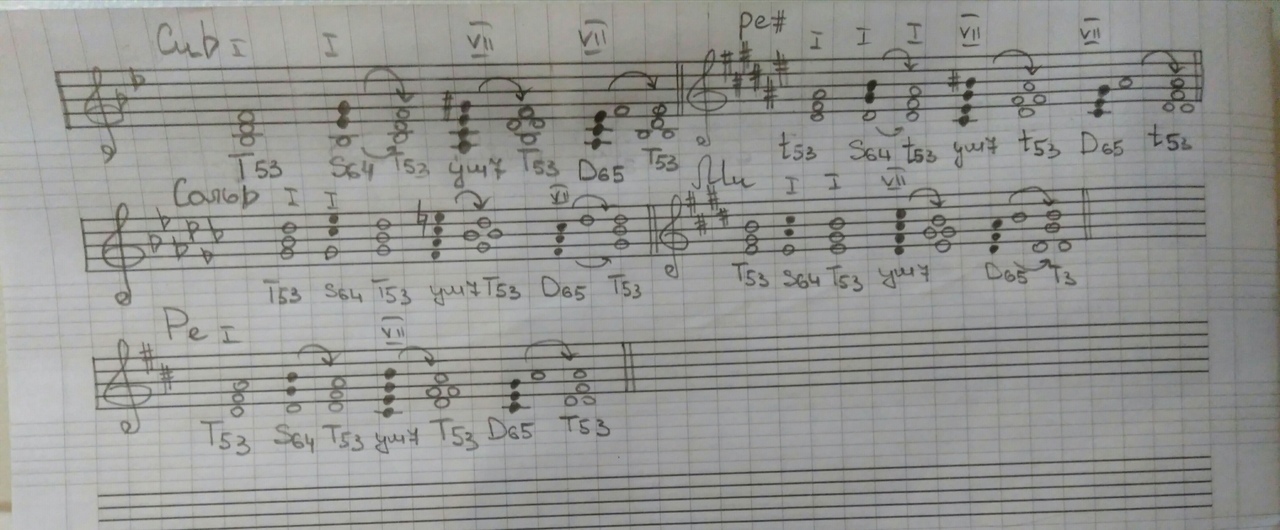 Сиb I I VII VII ре# I I I VII VII
T53 S64 T53 ум7 T53 D65 T53 t53 S64 t53 ум7 t53 D65 t53
Сольb I I VII VII Ля I I VII
T53 S64 T53 ум7 T53 D65 T53 T53 S64 T53 ум7 D65 T3
Ре I VII
T53 S64 T53 ум7 T53 D65 T53